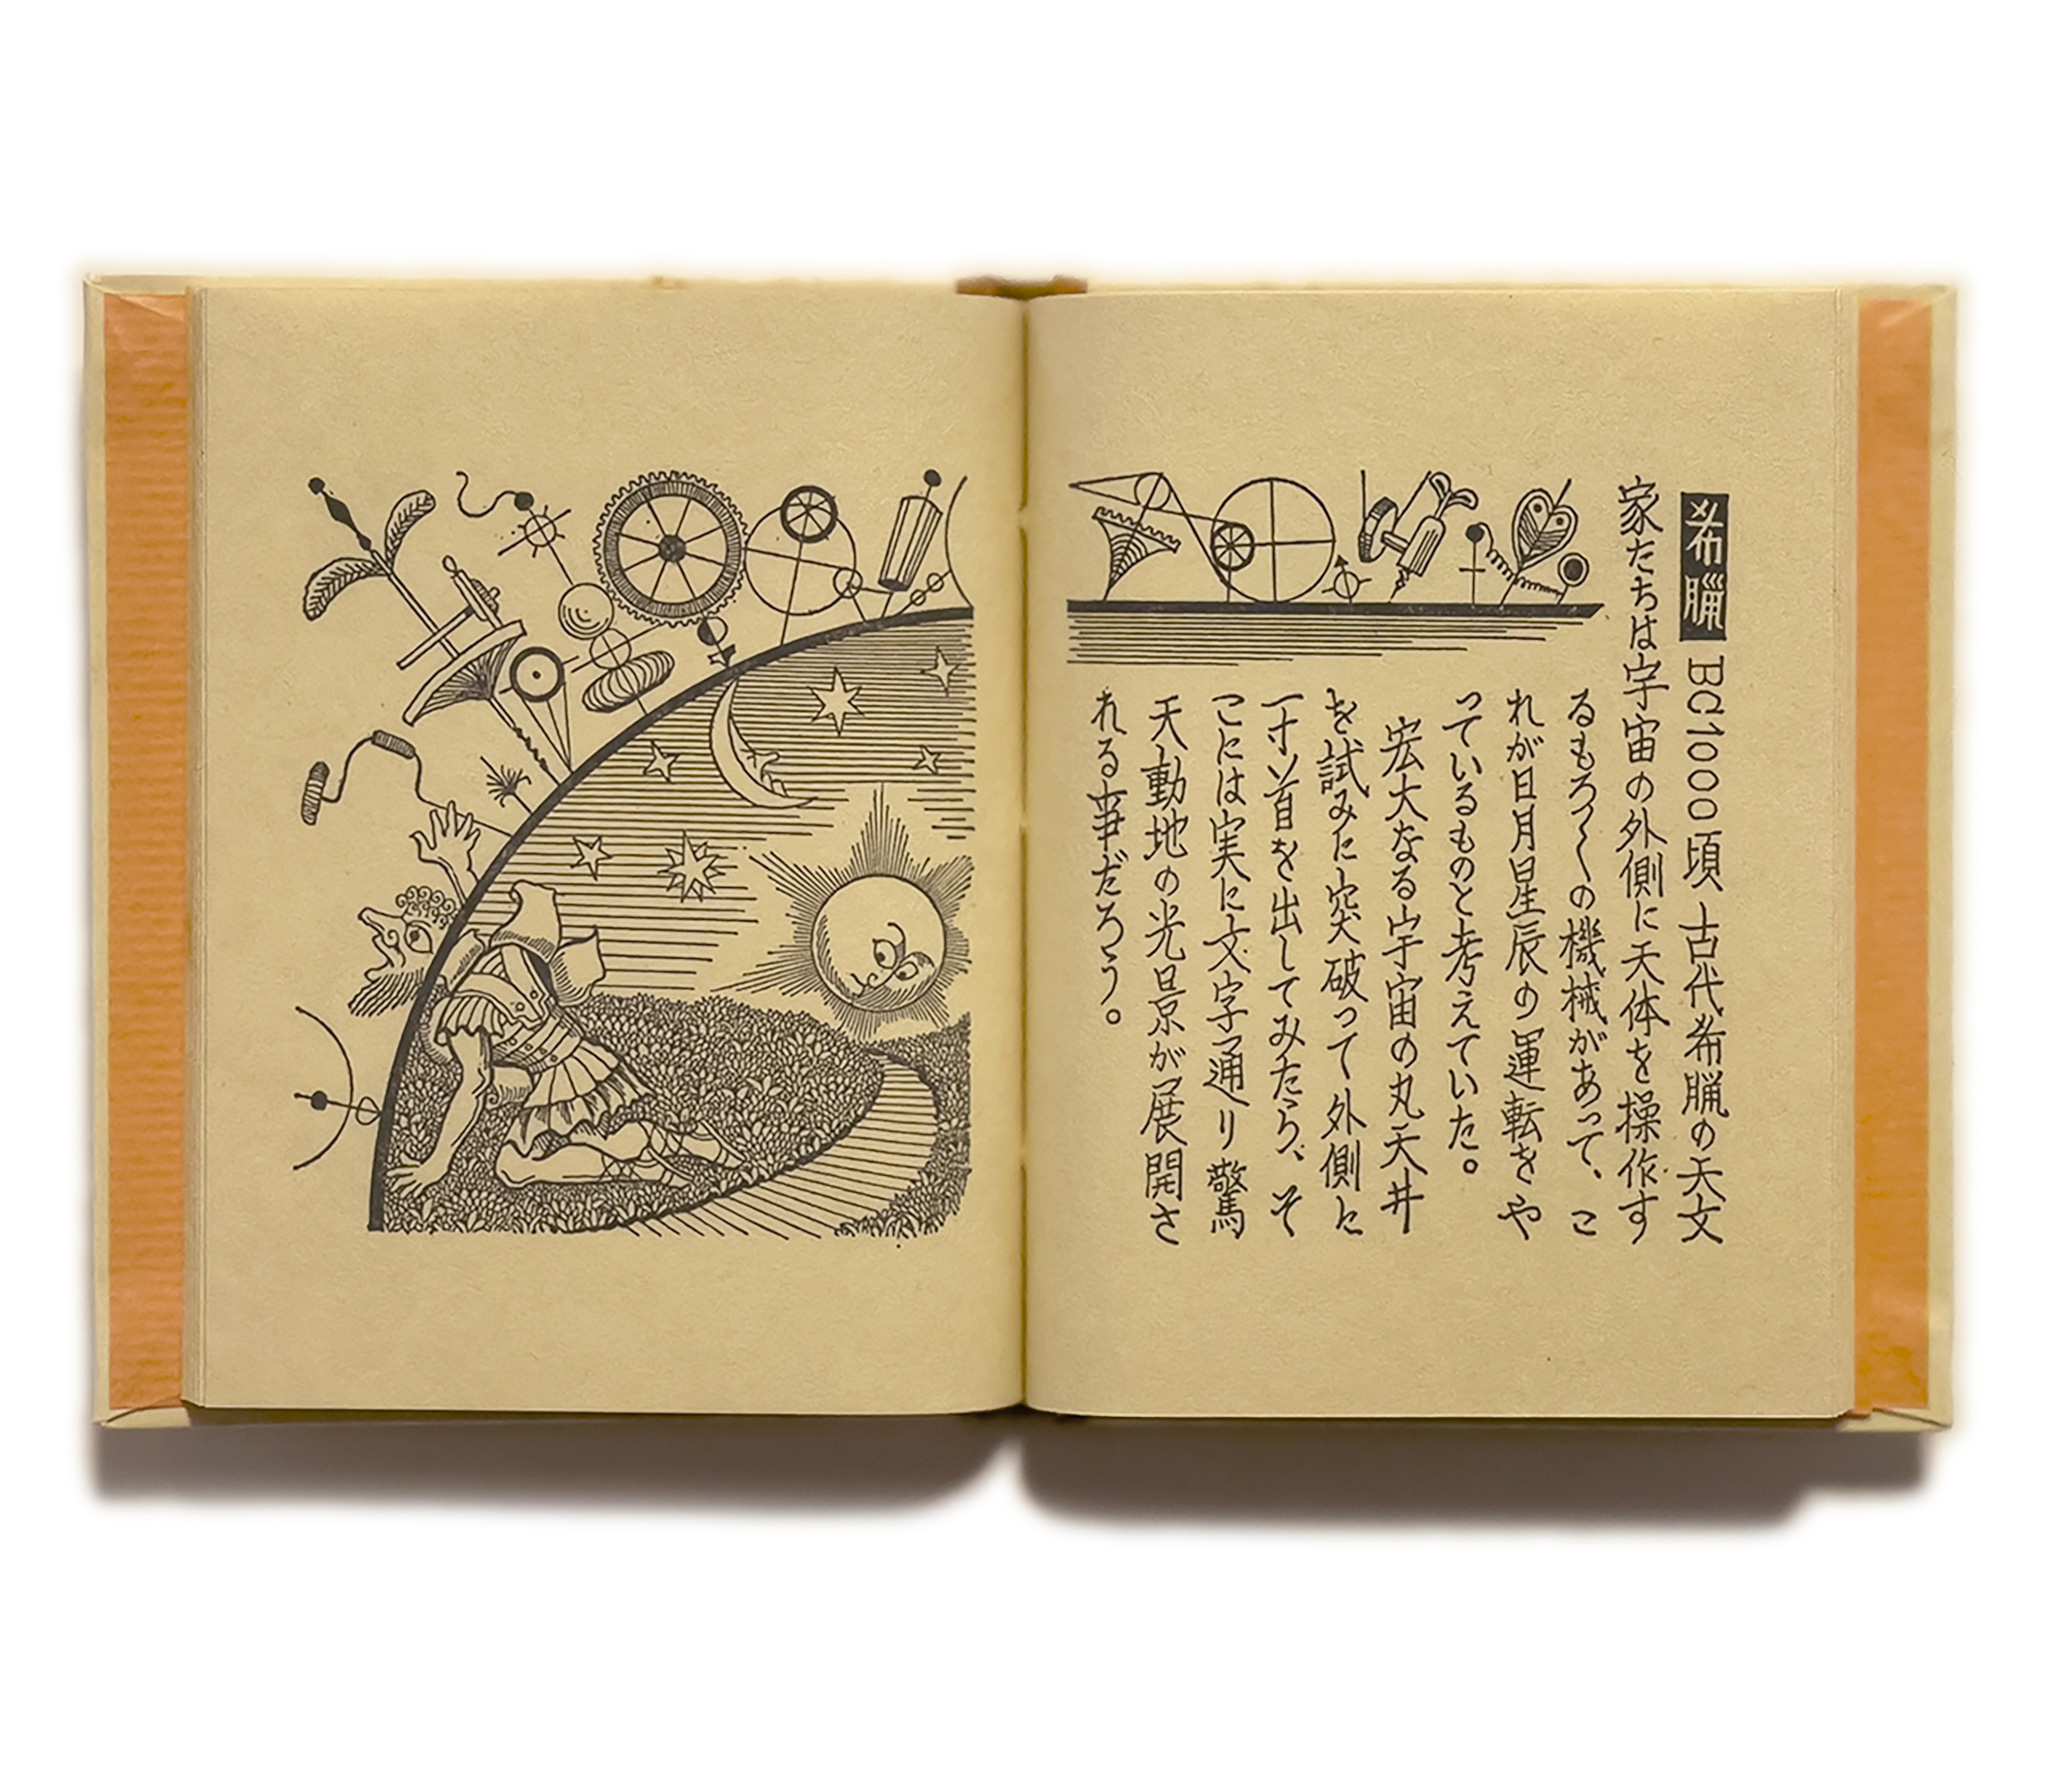 希臘 BC1000頃 古代希臘の天文
家たちは宇宙の外側に天体を操作す
るもろ〱の機械があって、こ
れが日月星辰の運転をや
っているものと考えていた。
宏大なる宇宙の丸天井
を試みに突破って外側に
一寸首を出してみたら、そ
こには実に文字通り驚
天動地の光景が展開さ
れる事だろう。